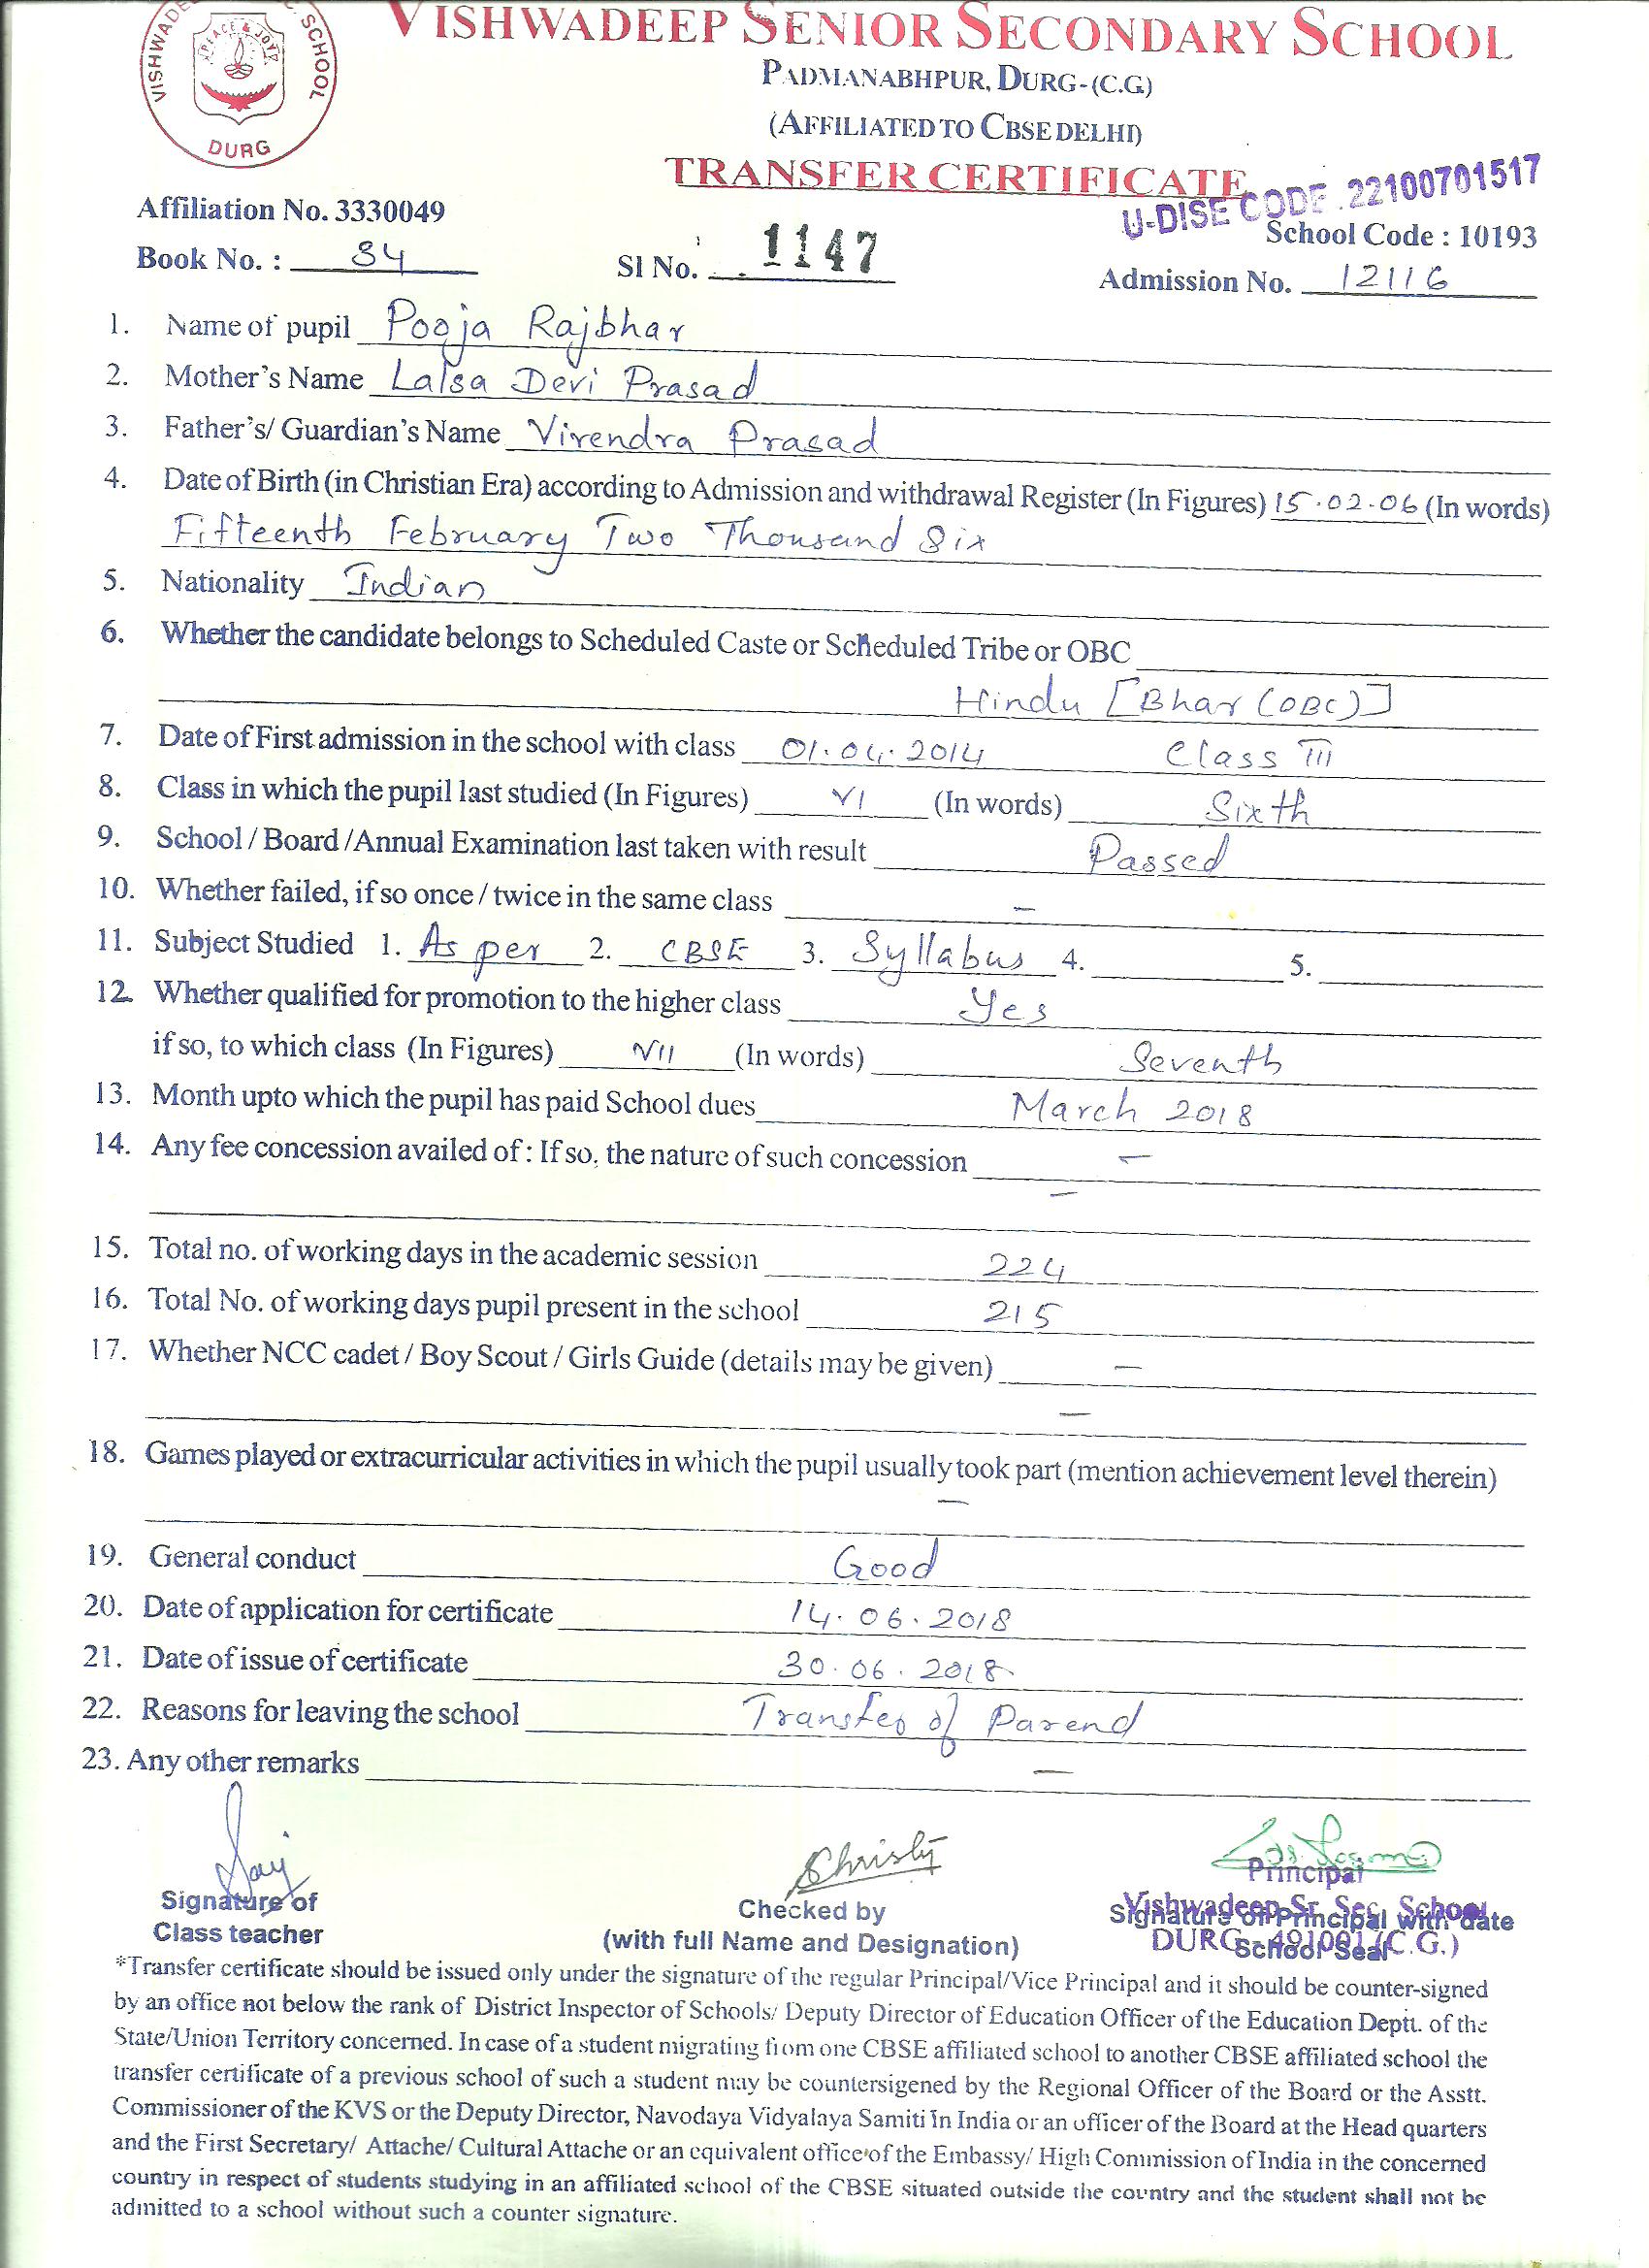 VISHWADEEP SENIOR SECONDARY SCHOOL
PEACE & JOY
SCHOOL
DURG
PADMANABHPUR, DURG-(C.G)
(AFFILIATED TO CBSE DELHI)
TRANSFER CERTIFICATE
U-DISE CODE. 22100701517
Affiliation No. 3330049
School Code : 10193
Book No. : 34 Sl No. 1147 Admission No. 12116
1. Name of pupil Pooja Rajbhar
2. Mother's Name Lalsa Devi Prasad
3. Father's/ Guardian's Name Virendra Prasad
4. Date of Birth (in Christian Era) according to Admission and withdrawal Register (In Figures) 15.02.06 (In words)
Fifteenth February Two Thousand Six
5. Nationality Indian
6. Whether the candidate belongs to Scheduled Caste or Scheduled Tribe or OBC
Hindu [Bhar (OBC)]
7. Date of First admission in the school with class 01.04.2014 Class III
8. Class in which the pupil last studied (In Figures) VI (In words) Sixth
9. School / Board /Annual Examination last taken with result Passed
10. Whether failed, if so once / twice in the same class –
11. Subject Studied 1. As per 2. CBSE 3. Syllabus 4. 5.
12. Whether qualified for promotion to the higher class Yes
if so, to which class (In Figures) VII (In words) Seventh
13. Month upto which the pupil has paid School dues March 2018
14. Any fee concession availed of : If so, the nature of such concession –
–
15. Total no. of working days in the academic session 224
16. Total No. of working days pupil present in the school 215
17. Whether NCC cadet / Boy Scout / Girls Guide (details may be given) –
–
18. Games played or extracurricular activities in which the pupil usually took part (mention achievement level therein)
–
19. General conduct Good
20. Date of application for certificate 14.06.2018
21. Date of issue of certificate 30.06.2018
22. Reasons for leaving the school Transfer of Parend
23. Any other remarks –
Christy
Principal
Signature of Checked by Vishwadeep Sr. Sec. School
Signature of Principal with date
Class teacher (with full Name and Designation) DURG - 491001 (C.G.)
School Seal
*Transfer certificate should be issued only under the signature of the regular Principal/Vice Principal and it should be counter-signed
by an office not below the rank of District Inspector of Schools/ Deputy Director of Education Officer of the Education Deptt. of the
State/Union Territory concerned. In case of a student migrating from one CBSE affiliated school to another CBSE affiliated school the
transfer certificate of a previous school of such a student may be countersigened by the Regional Officer of the Board or the Asstt.
Commissioner of the KVS or the Deputy Director, Navodaya Vidyalaya Samiti in India or an officer of the Board at the Head quarters
and the First Secretary/ Attache/ Cultural Attache or an equivalent office of the Embassy/ High Commission of India in the concerned
country in respect of students studying in an affiliated school of the CBSE situated outside the country and the student shall not be
admitted to a school without such a counter signature.